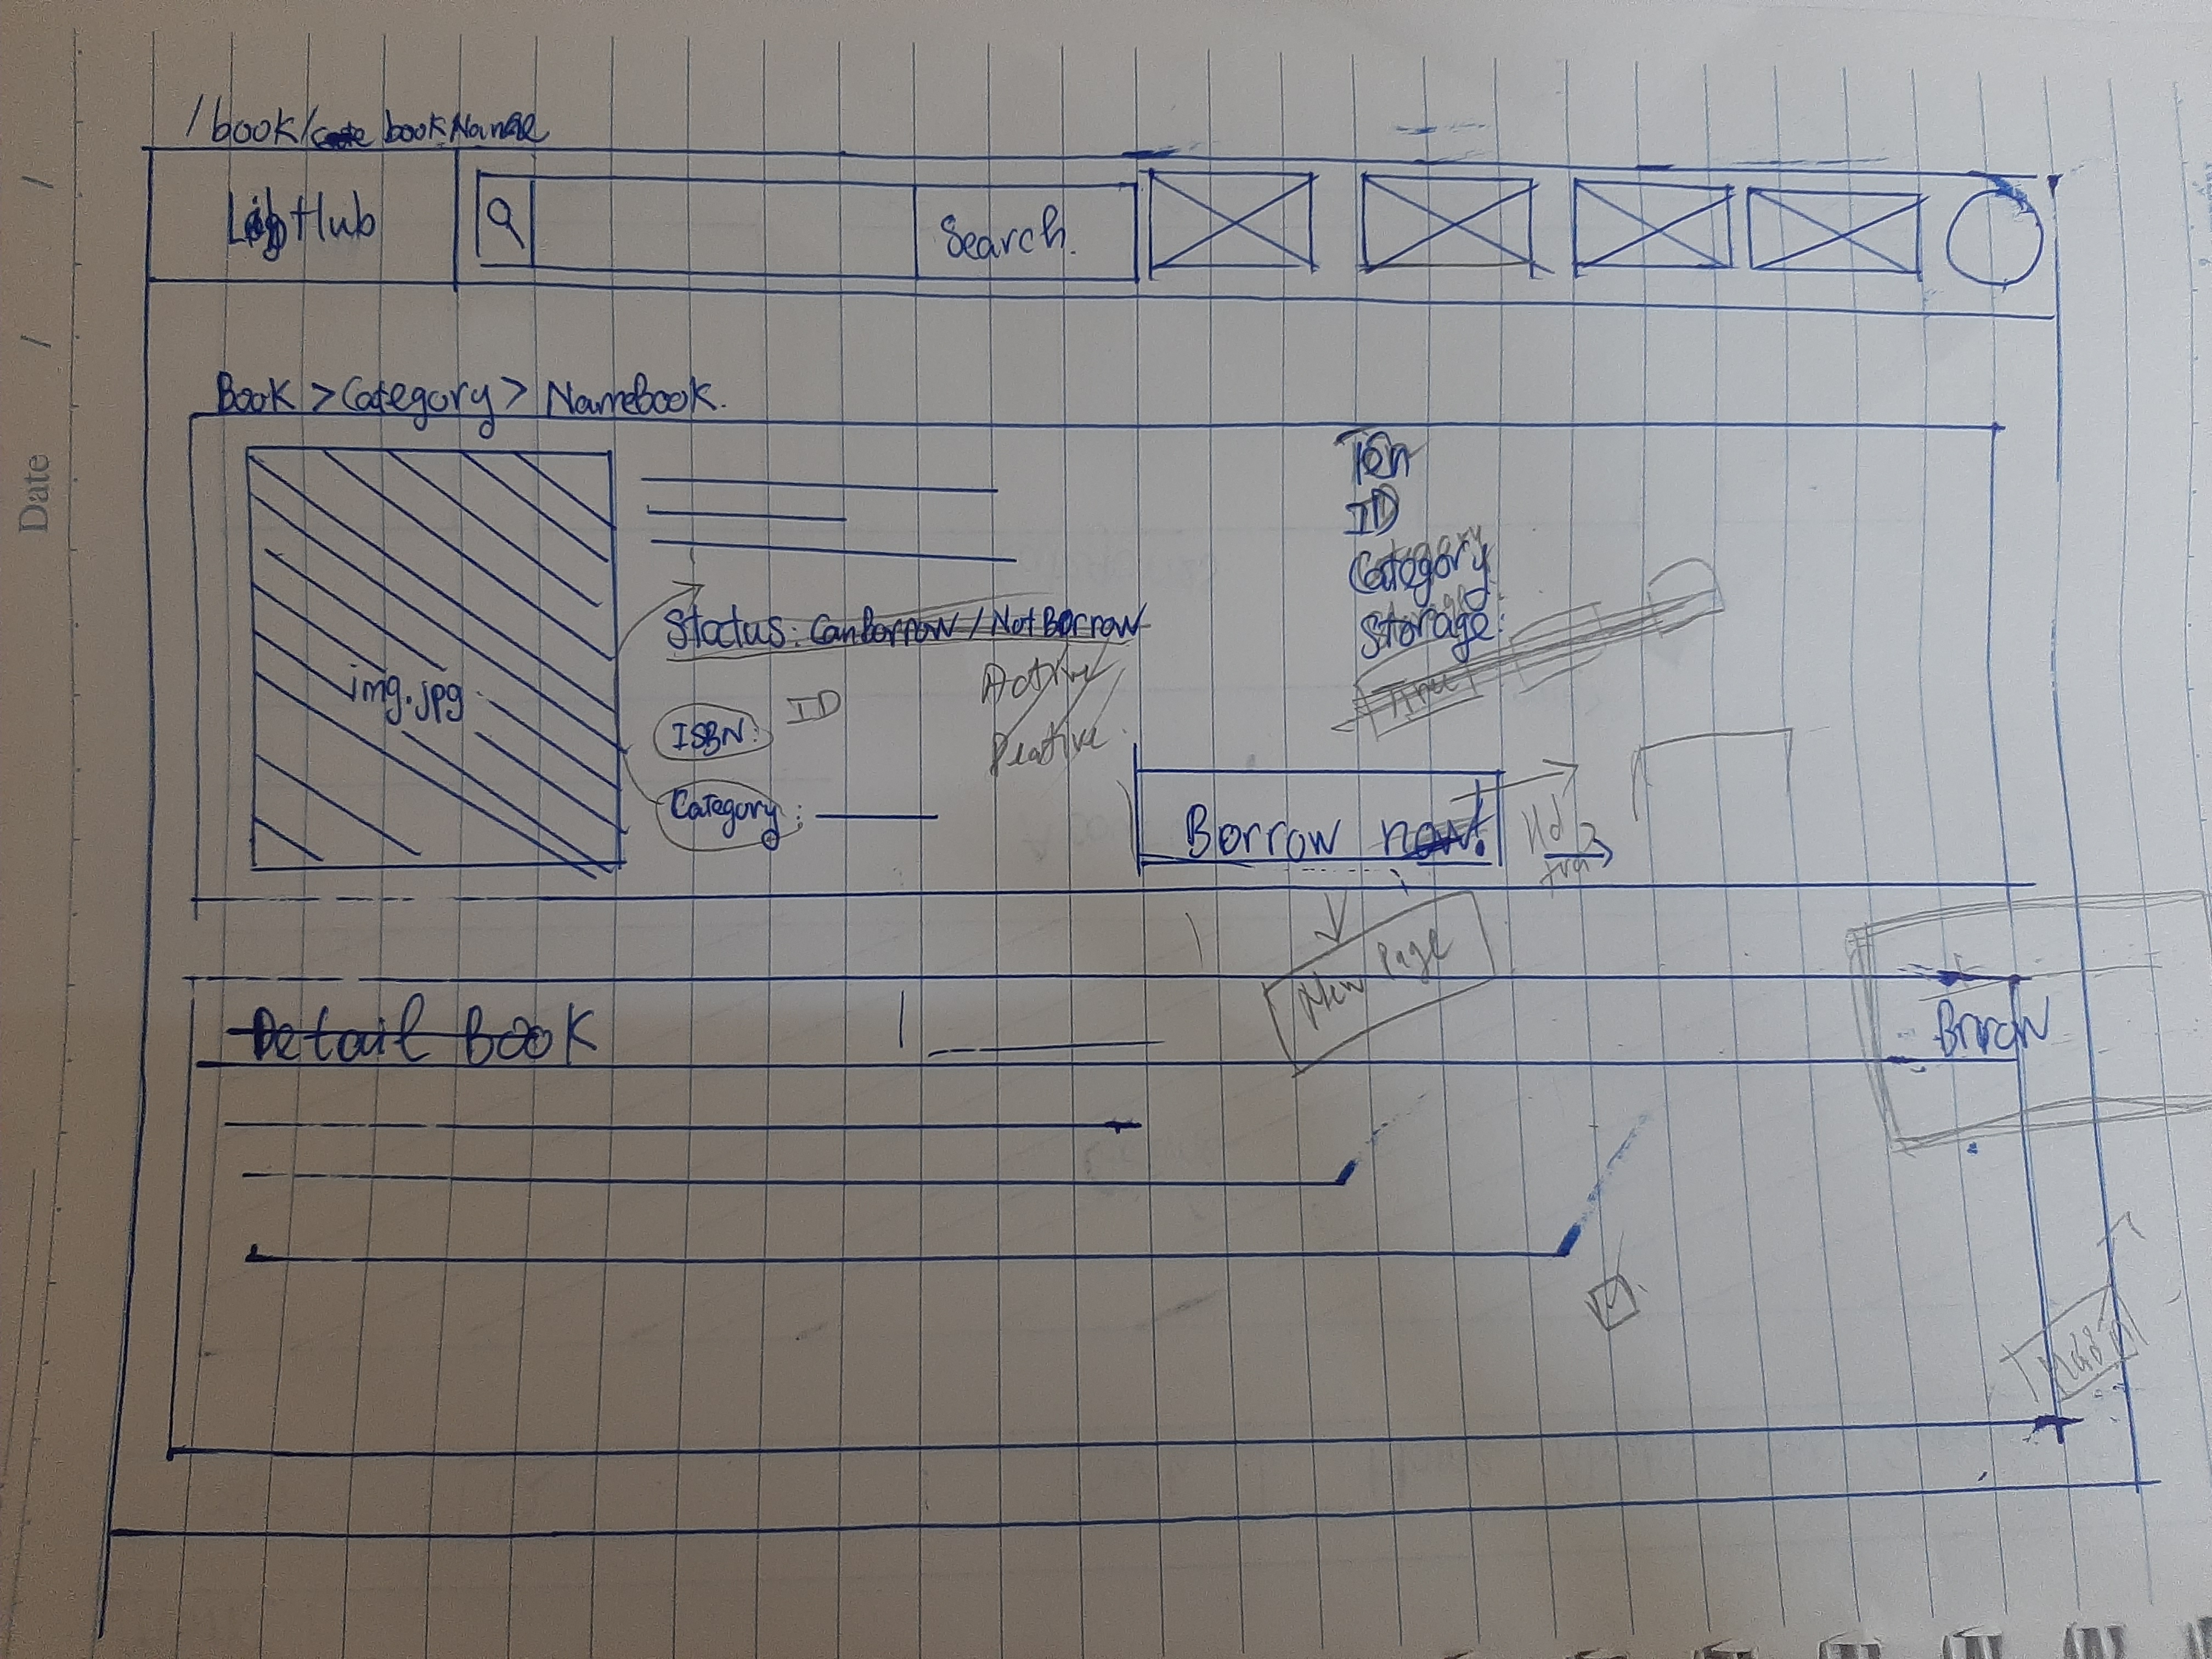 Date / /
/book/ bookName
LipHub
Search.
Book > Category > Namebook.
img.jpg
Status: Can borrow / Not Borrow
ISBN:
ID
Category:
Tên
ID
Category
Storage:
Borrow now!
New Page
Detail book